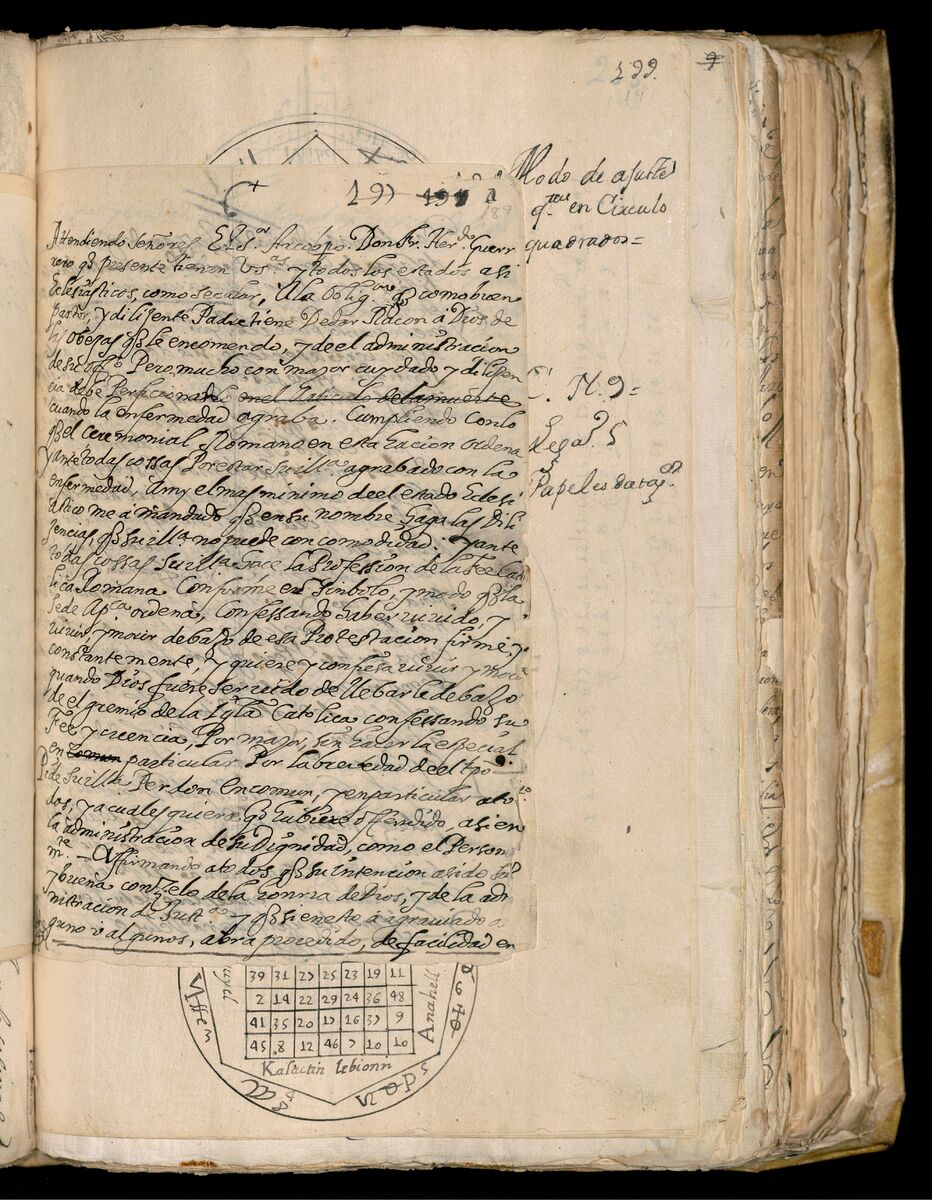 199.
Modo de ajustar
en Circulo
quadrados=
C. N. 9=
Lega. 5
Papeles
197
189
Atendiendo Señores El Sor Arcobpo. Don Fr. Herdo Guerr
rero qe presente tienen Vsas. y todos los estados asi
Eclesiasticos, como secular, A la obligon qe como buen
pastor, y diligente Padre tiene De dar Racon a Dios de
las obejas qe le encomendo, y de el administracion
de su offo Pero mucho con major cuydado y diligen
cia debe Perficionar en el Articulo de la muerte
cuando la enfermedad agraba. Cumpliendo con lo
qe el ceremonial Romano en esta racion ordena
y ante todas cossas Por estar su illa agrabado con la
enfermedad, A my el mas minimo de el estado Eclesi
astico me a mandado qe en su nombre haga las Dili
jencias qe su illa no puede con comodidad. Y ante
todas cossas su illa hace la Profession de la Fee Cato
lica Romana Conforme en Simbolo, y modo qe la
Sede Apca ordena, Confessando haber vivido, y
vivir, y morir debazo de esta Protestacion firme, y
constantemente, y quiere y confesa vivir y morir
quando Dios fuere servido de llebarle debazo
de el gremio de la Iglа Catolica confessando su
Fee y creencia, Por major, sin hacer la especial
en comun particular Por la brevedad de el tpo
Pide su illa Perdon En comun, y en particular a to
dos, y a cualesquiera qe hubiere offendido, asi en
la administracion de su Dignidad, como el Person
mte. Affirmando a todos qe su intencion a sido
y buena con Zelo de la honrra de Dios, y de la adm
nistracion de Justa y qe si en esto a agraviado a
guno v algunos, abra procedido, de facilidad en
39 31 27 25 23 19 11
2 14 22 29 24 36 48
41 35 20 17 16 37 9
45 8 12 46 7 10 10
Anahell
Kalactin lebionn